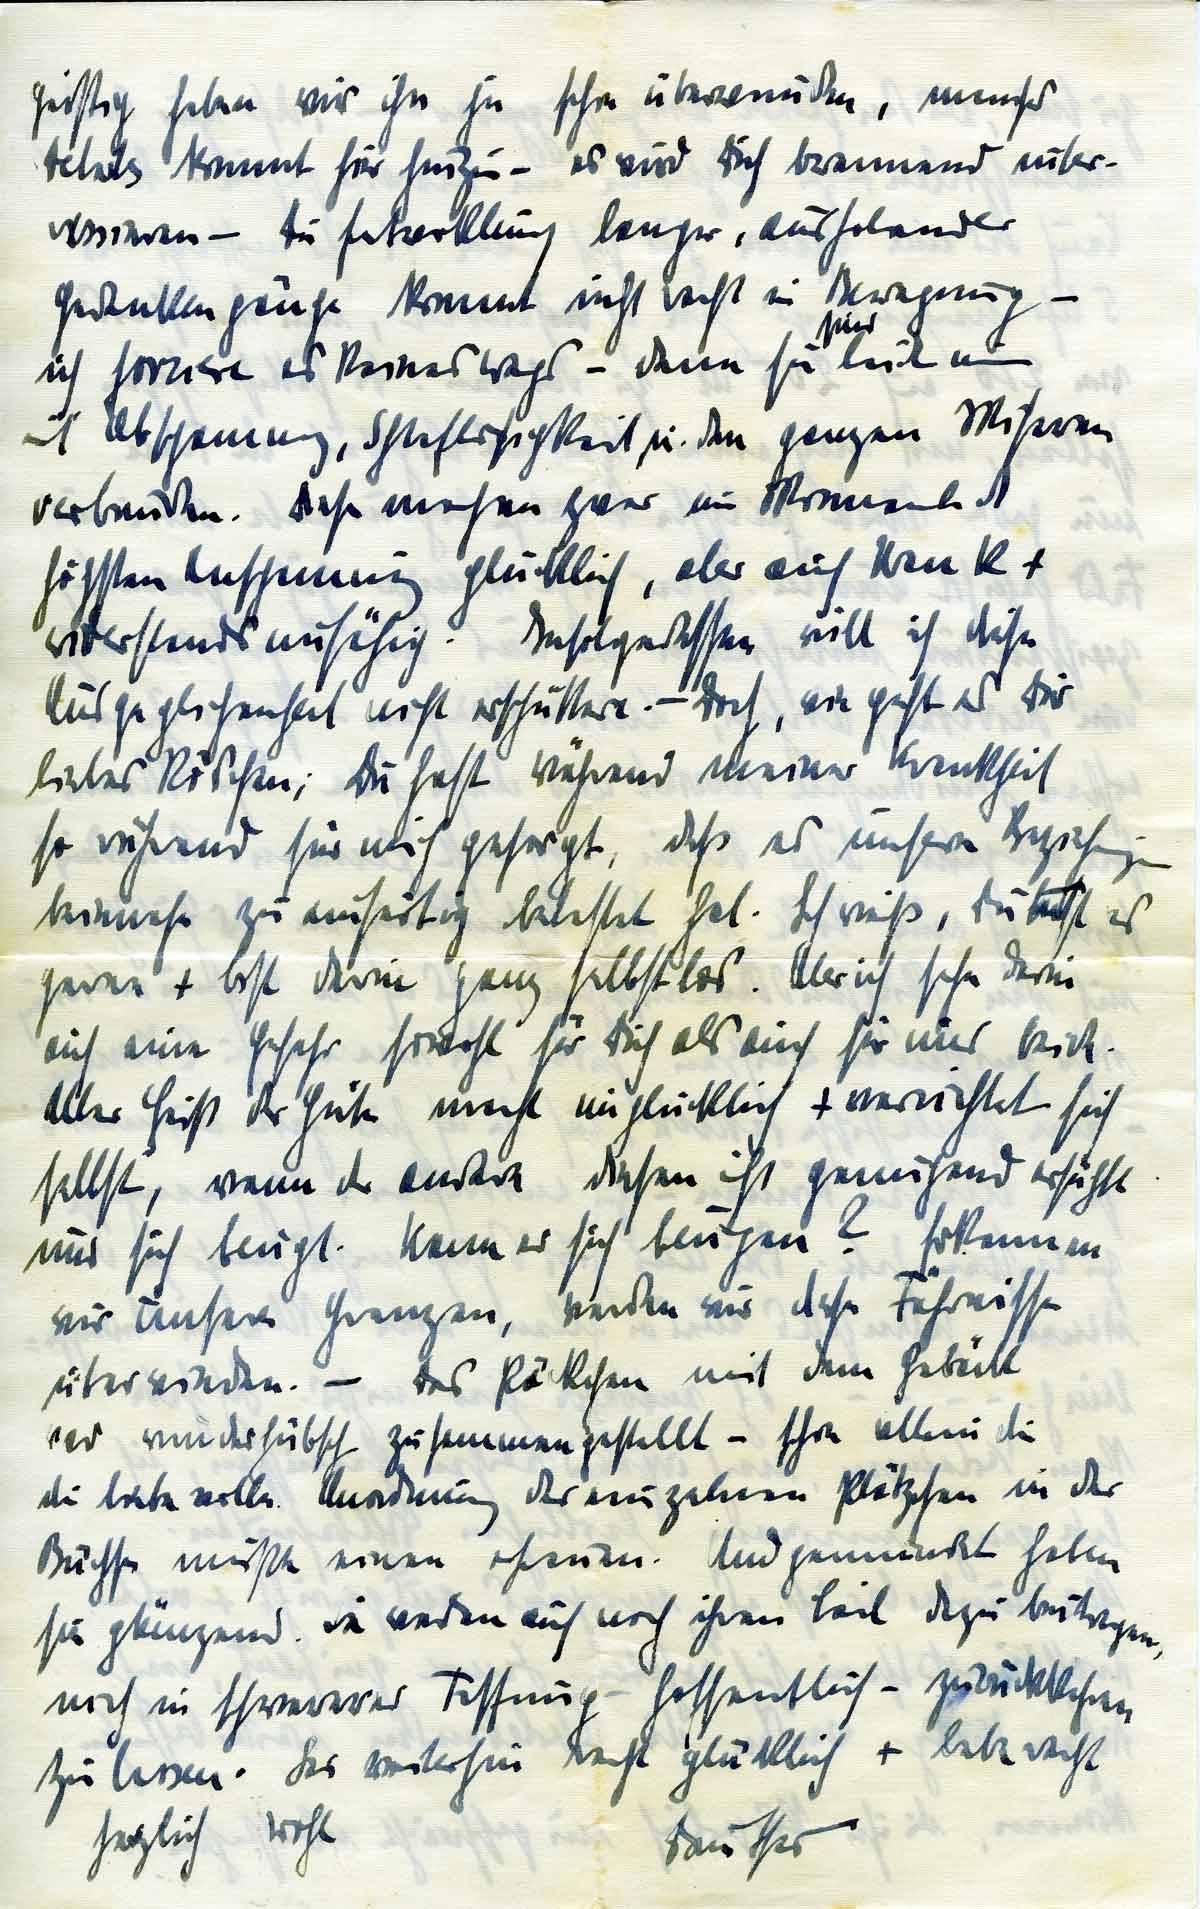 geistig haben wir ihn ja schon überwunden, manches
Details kommt hier hinzu – es wird Dich brennend inter-
essieren – die Entwicklung langer, ausholender
Gedankengänge kommt nicht recht in Bewegung –
ich forciere es keineswegs – denn sie sind leider nun
mit Abspannung, Schlaflosigkeit u. den ganzen Miseren
verbunden. Diese machen zwar im Moment d
höchsten Anspannung glücklich, aber auch krank +
widerstandsunfähig. Infolgedessen will ich diese
Ausgeglichenheit nicht erschüttern. – Doch, wie geht es Dir
liebes Röschen; Du hast während meiner Krankheit
so rührend für mich gesorgt, daß es unsere Beziehungen
beinahe zu einseitig belastet hat. Ich weiß, Du tust es
gerne + bist darin ganz selbstlos. Aber ich sehe darin
auch eine Gefahr sowohl für Dich als auch für uns beide.
Aller Geist der Güte macht unglücklich + vernichtet sich
selbst, wenn der andere diesen nicht genügend erfühlt
und sich beugt. Kann er sich beugen? Erkennen
wir unsere Grenzen, werden wir diese Fährnisse
überwinden. – Das Päckchen mit dem Gebäck
war wunderhübsch zusammengestellt – schon allein die
die liebevolle Anordnung der einzelnen Plätzchen in der
Büchse mußte einen erfreuen. Und gemundet haben
sie glänzend. Sie werden auch noch ihren Teil dazu beitragen,
mich in schwererer Fassung – hoffentlich – zurückkehren
zu lassen. Sei weiterhin recht glücklich + lebe recht
herzlich wohl